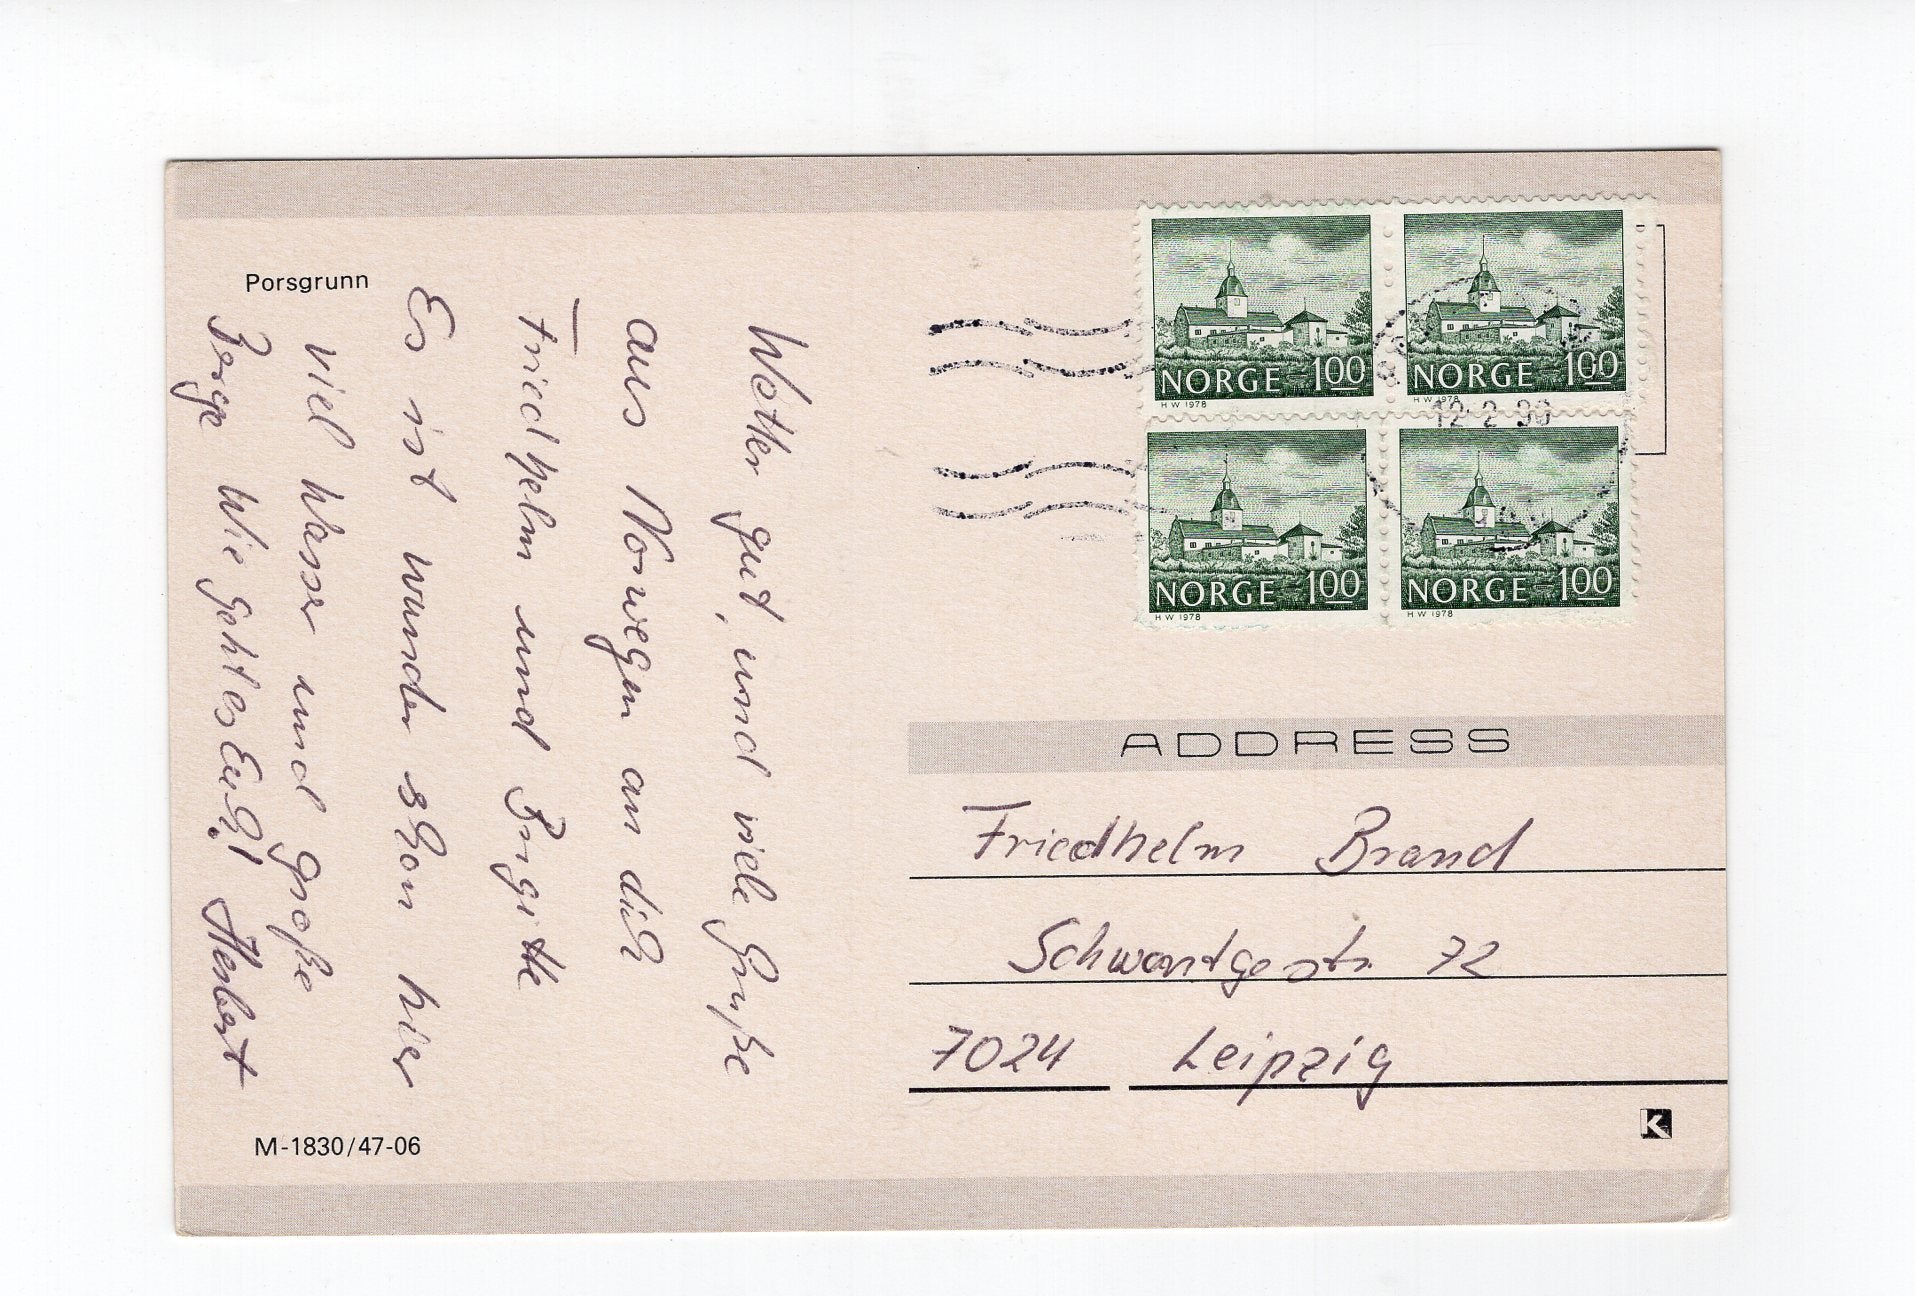 Porsgrunn
Wetter gut, und viele Grüße
aus Norwegen an dich
Friedhelm und Brigitte
Es ist wunder schon hier
viel Wasser und große
Berge Wie geht es Euch! Herbert
M-1830/47-06
NORGE 100
H W 1978
NORGE 100
H W 1978
12-2 90
NORGE 100
H W 1978
NORGE 100
H W 1978
ADDRESS
Friedhelm Brand
72
7024 Leipzig
K